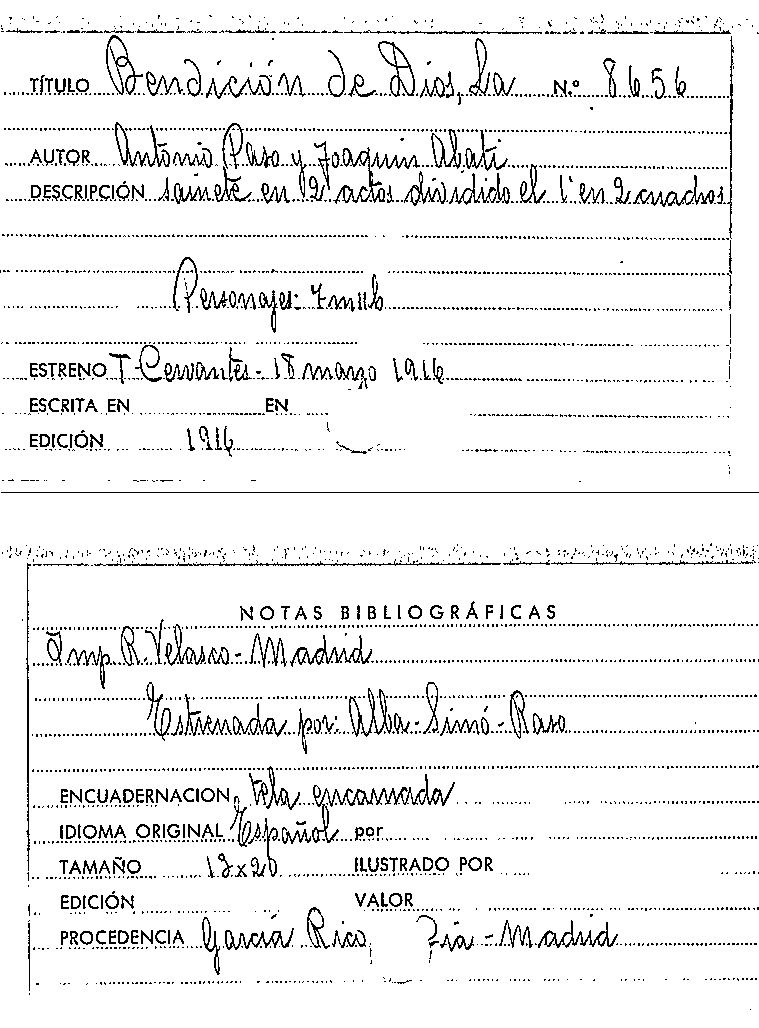 TÍTULO Bendición de Dios, La N.º 8656
AUTOR Antonio Paso y Joaquin Abati
DESCRIPCIÓN sainete en 2 actos dividido el 1º en 2 cuadros
Personajes:
ESTRENO T-Cervantes - 18 marzo 1916
ESCRITA EN EN
EDICIÓN 1916
NOTAS BIBLIOGRÁFICAS
Imp. R. Velasco - Madrid
Estrenada por: Alba - Simó - Raso
ENCUADERNACION tela encarnada
IDIOMA ORIGINAL Español por
TAMAÑO 13x20 ILUSTRADO POR
EDICIÓN VALOR
PROCEDENCIA García Rico - Madrid